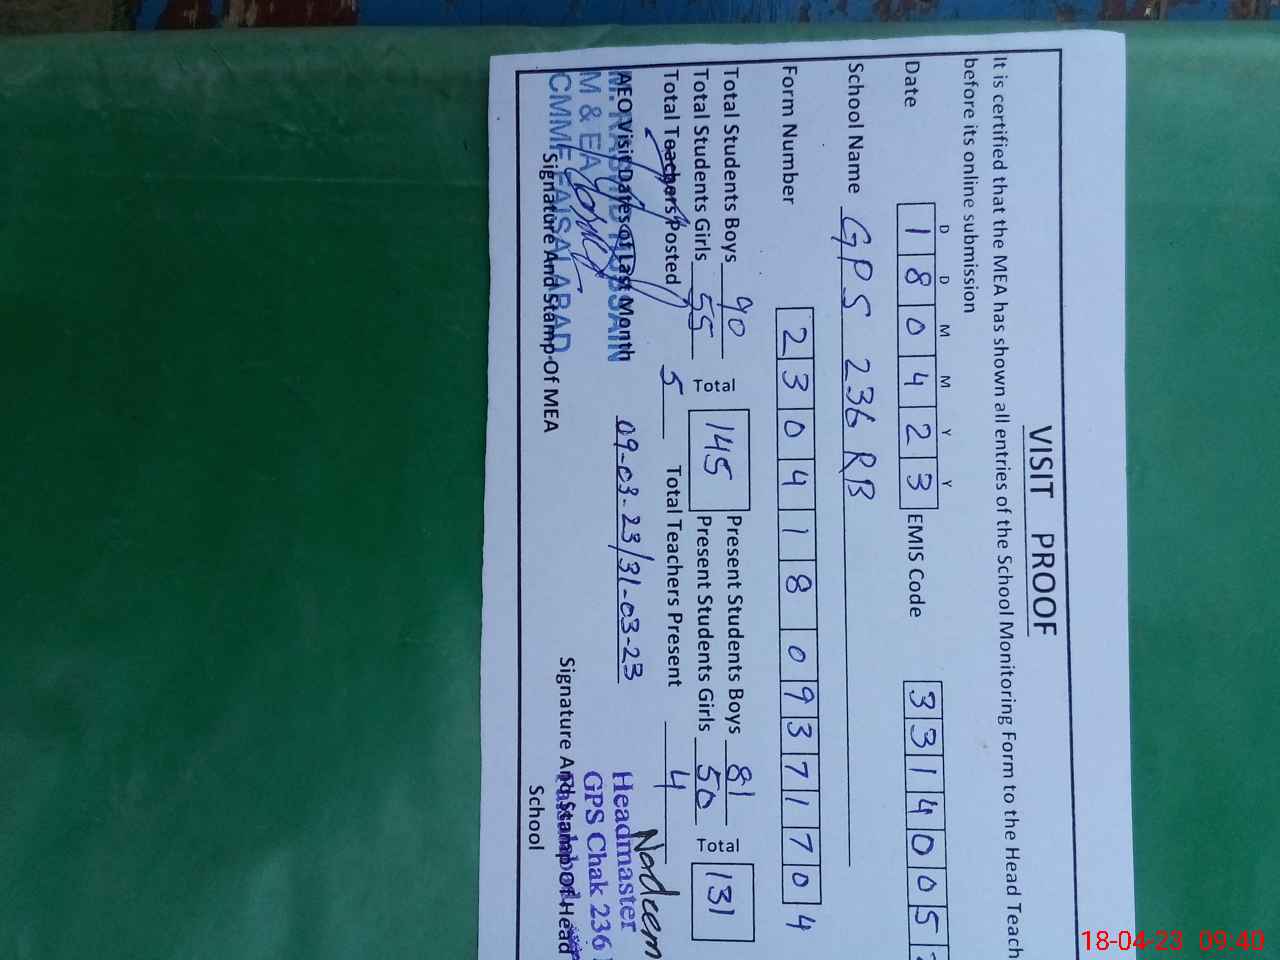 VISIT PROOF
It is certified that the MEA has shown all entries of the School Monitoring Form to the Head Teach
before its online submission
D D M M Y Y
Date 1 8 0 4 2 3 EMIS Code 3 3 1 4 0 0 5
School Name GPS 236 RB
Form Number 2 3 0 4 1 8 0 9 3 7 1 7 0 4
Total Students Boys 90 Total 145 Present Students Boys 81 Total 131
Total Students Girls 55 Present Students Girls 50
Total Teachers Posted 5 Total Teachers Present 4
AEO Visit Dates of Last Month 09-03-23/31-03-23
M & EA
CMMF FAISALABAD
Signature And Stamp Of MEA
Nadeem
Headmaster
GPS Chak 236
Signature And Stamp Of Head
School
18-04-23 09:40